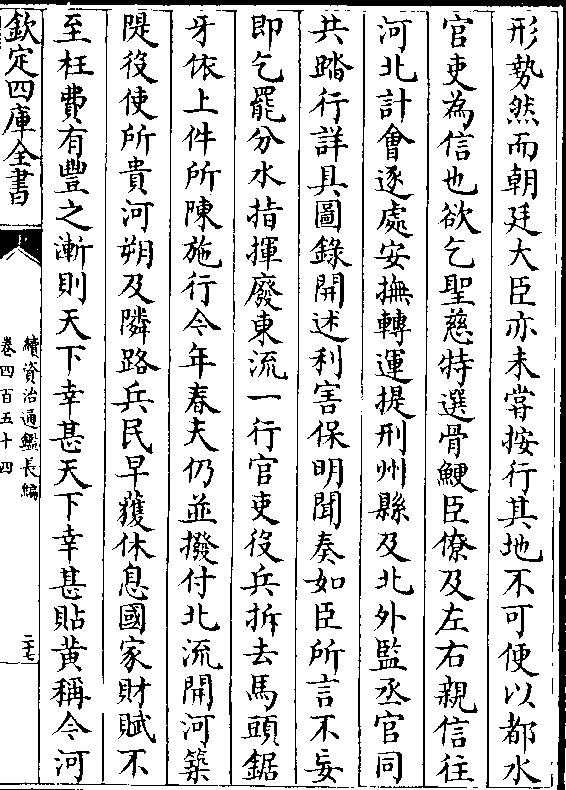 形勢然而朝廷大臣亦未嘗按行其地不可便以都水
官吏為信也欲乞聖慈特選骨鯁臣僚及左右親信往
河北計會逐處安撫轉運提刑州縣及北外監丞官同
共踏行詳具圖錄開述利害保明聞奏如臣所言不妄
即乞罷分水指揮廢東流一行官吏役兵拆去馬頭鋸
牙依上件所陳施行今年春夫仍並撥付北流開河築
隄役使所貴河朔及隣路兵民早獲休息國家財賦不
至枉費有豐之漸則天下幸甚天下幸甚貼黃稱今河
欽定四庫全書
續資治通鑑長編
卷四百五十四
二七